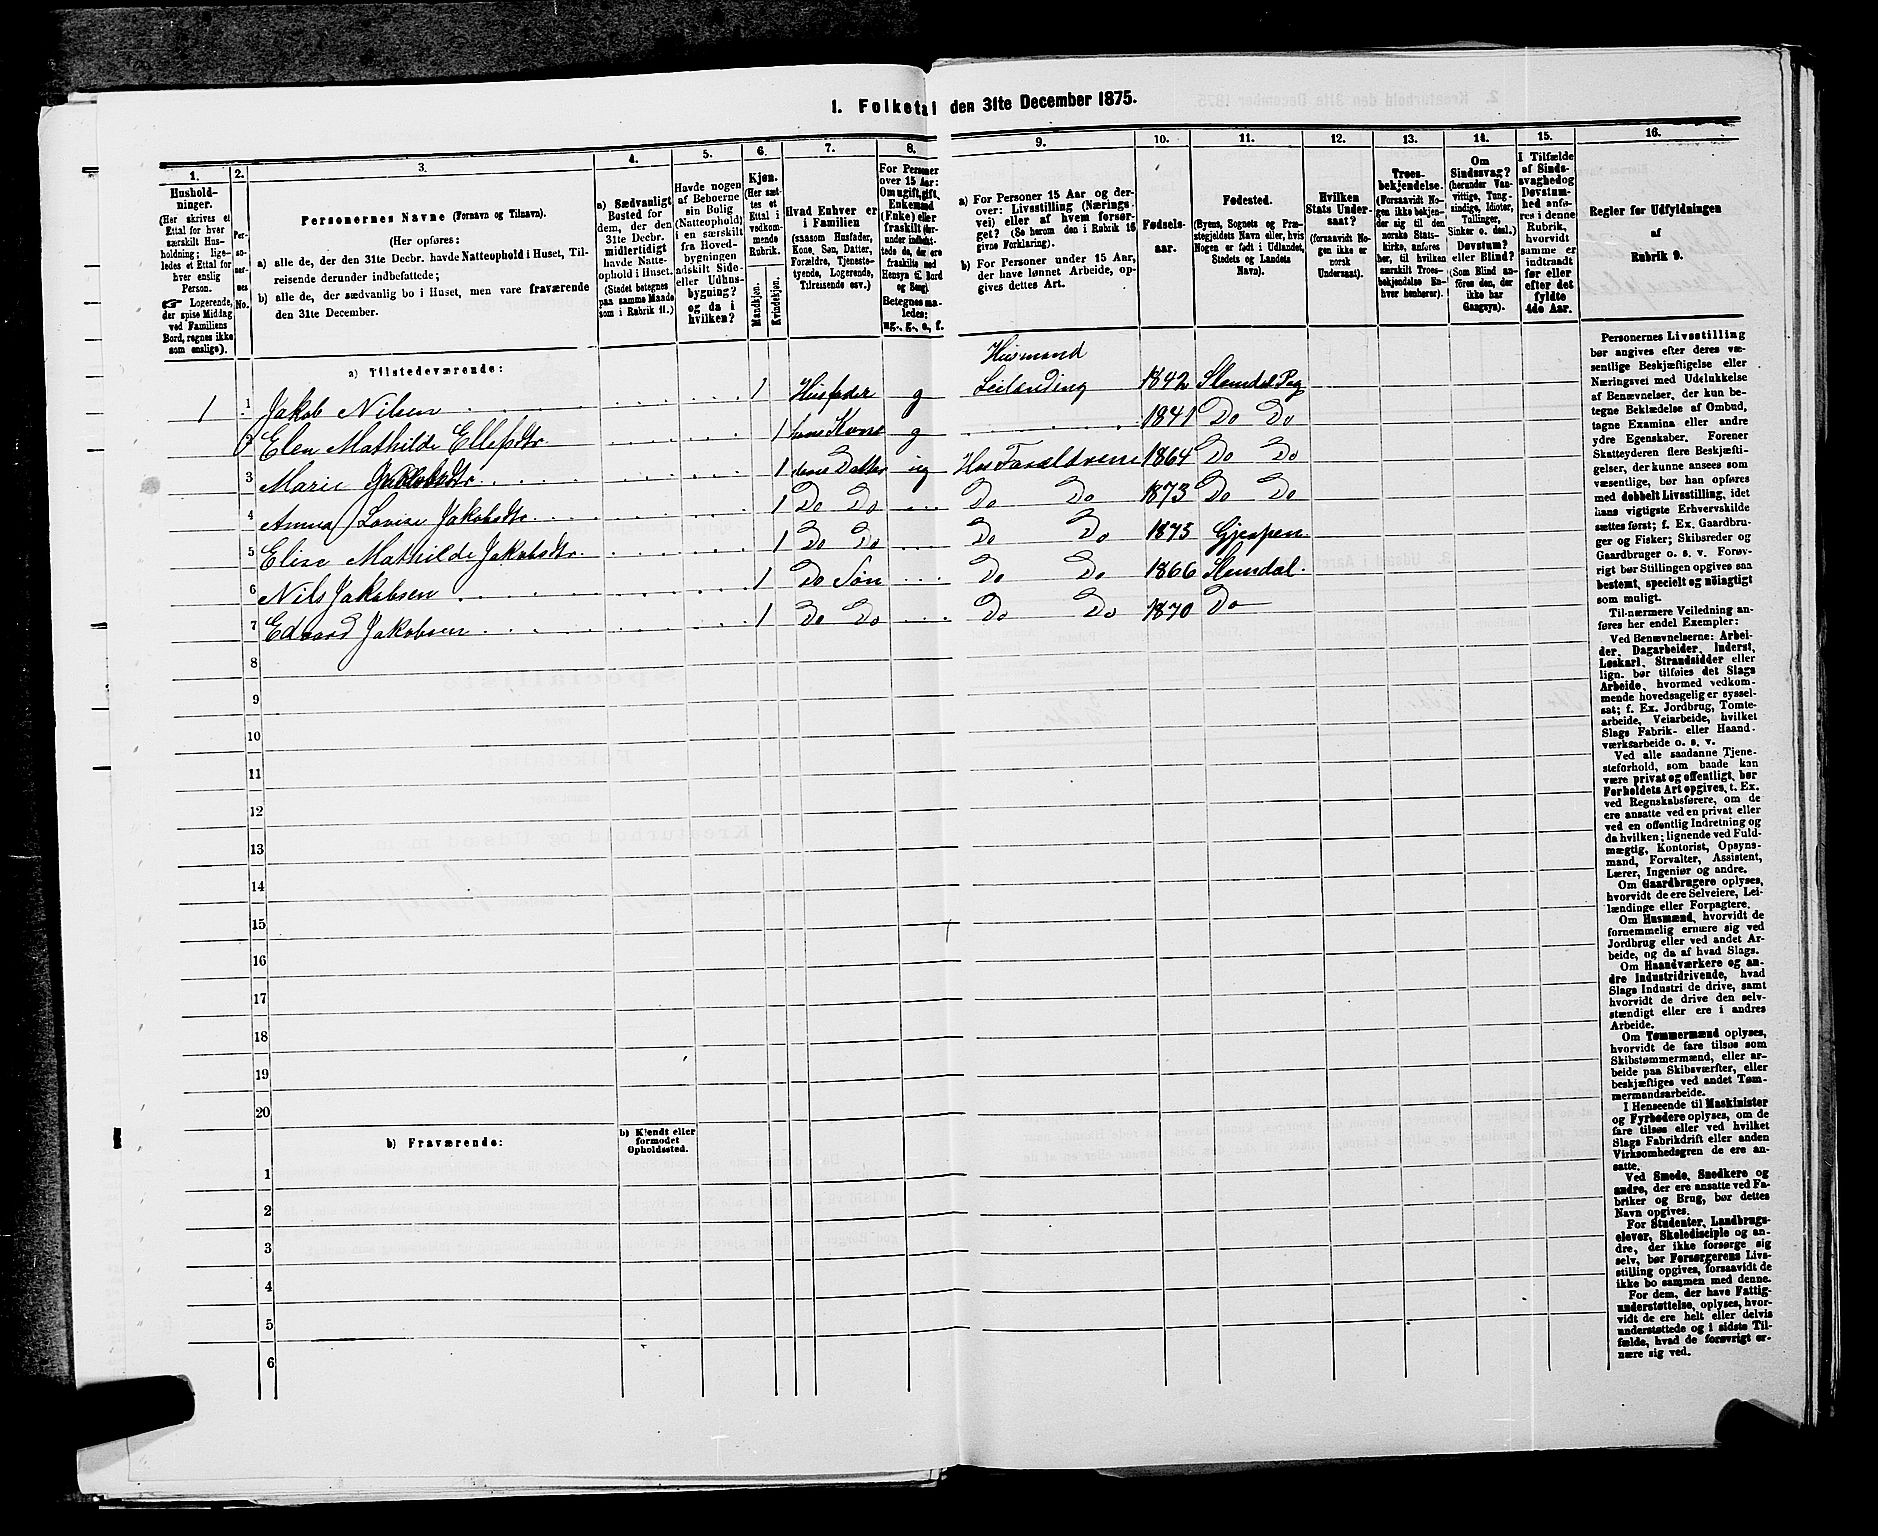 1. Folketal den 31te December 1875.
1.
2.
3.
4.
5.
6.
7.
8.
9.
10.
11.
12.
13.
14.
15.
16.
Hushold-
ninger.
(Her skrives et
Ettal for hver
særskilt Hus-
holdning; lige-
ledes et Ettal for
hver enslig
Person.
☞ Logerende,
der spise Middag
ved Familiens
Bord, regnes ikke
som enslige).
Per-
so-
ner-
nes
No.
Personernes Navne (Fornavn og Tilnavn).
(Her opføres:
a) alle de, der den 31te Decbr. havde Natteophold i Huset, Til-
reisende derunder indbefattede;
b) alle de, der sædvanlig bo i Huset, men vare fraværende
den 31te December.
a) Sædvanligt
Bosted for
dem, der den
31te Decbr.
midlertidigt
havde Natte-
ophold i Huset.
(Stedet betegnes
paa samme Maade
som i Rubrik 11.)
Havde nogen
af Beboerne
sin Bolig
(Natteophold)
i en særskilt
fra Hoved-
bygningen
adskilt Side-
eller Udhus-
bygning?
og da i
hvilken?
Kjøn.
(Her sæt-
tes et
Ettal i
vedkom-
mende
Rubrik.
Mandkjøn.
Kvindekjøn.
Hvad Enhver er
i Familien
(saasom Husfader,
Kone, Søn, Datter,
Forældre, Tjeneste-
tyende, Logerende,
Tilreisende osv.)
For Personer
over 15 Aar:
Om ugift, gift,
Enkemand
(Enke) eller
fraskilt (her-
under indbefat-
tede de, der ere
fraskilte med
Hensyn til Bord
og Seng).
Betegnes saa-
ledes:
ug., g., e., f.
a) For Personer 15 Aar og der-
over: Livsstilling (Nærings-
vei) eller af hvem forsør-
get? (Se herom den i Rubrik 16
givne Forklaring).
b) For Personer under 15 Aar,
der have lønnet Arbeide, op-
gives dettes Art.
Fødsels-
aar.
Fødested.
(Byens, Sognets og Præ-
stegjeldets Navn eller, hvis
Nogen er født i Udlandet,
Stedets og Landets
Navn).
Hvilken
Stats Under-
saat?
(forsaavidt No-
gen ikke er
norsk
Undersaat).
Troes-
bekjendelse.
(Forsaavidt No-
gen ikke bekjen-
der sig til den
norske Stats-
kirke, anføres
her, til hvilken
særskilt Troes-
bekjendelse En-
hver henhører).
Om
Sindssvag?
(herunder Van-
vittige, Tung-
sindige, Idioter,
Tullinger,
Sinker o. desl.)
Døvstum?
eller Blind?
(Som Blind an-
føres den, der
ikke har
Gangsyn).
I Tilfælde
af Sinds-
svaghed og
Døvstum-
hed anfø-
res i denne
Rubrik,
hvorvidt
samme er
indtraadt
før eller
efter det
fyldte
4de Aar.
Regler for Udfyldningen
af
Rubrik 9.
a) Tilstedeværende:
Husmand
1 1 Jakob Nilsen 1 Husfader g Leilending 1842 Slemdal Pg
2 Elen Mathilde Ellefsdtr 1 hans Kone g 1841 Do Do
3 Marie Jakobsdtr 1 deres Datter ug Hos Forældrene 1864 Do Do
4 Anna Lovise Jakobsdtr 1 Do Do Do Do 1873 Do Do
5 Elise Mathilde Jakobsdtr 1 Do Do Do Do 1875 Gjerpen
6 Nils Jakobsen 1 Do Søn Do Do 1866 Slemdal
7 Edvard Jakobsen 1 Do Do Do Do 1870 Do
8
9
10
11
12
13
14
15
16
17
18
19
20
b) Fraværende:
b) Kjendt eller
formodet
Opholdssted.
1
2
3
4
5
6
Personernes Livsstilling
bør angives efter deres væ-
sentlige Beskjæftigelse eller
Næringsvei med Udelukkelse
af Benævnelser, der kun be-
tegne Beklædelse af Ombud,
tagne Examina eller andre
ydre Egenskaber. Forener
Skatteyderen flere Beskjæfti-
gelser, der kunne ansees som
væsentlige, bør han opføres
med dobbelt Livsstilling, idet
hans vigtigste Erhvervskilde
sættes først; f. Ex. Gaardbru-
ger og Fisker; Skibsreder og
Gaardbruger o. s. v. Forøv-
rigt bør Stillingen opgives saa
bestemt, specielt og nøiagtigt
som muligt.
Til nærmere Veiledning an-
føres her endel Exempler:
Ved Benævnelserne: Arbei-
der, Dagarbeider, Inderst,
Løskarl, Strandsidder eller
lign. bør tilføies det Slags
Arbeide, hvormed vedkom-
mende hovedsagelig er syssel-
sat; f. Ex. Jordbrug, Tomte-
arbeide, Veiarbeide, hvilket
Slags Fabrik- eller Haand-
værksarbeide o. s. v.
Ved alle saadanne Tjene-
steforhold, som baade kan
være privat og offentligt, bør
Forholdets Art opgives, t. Ex.
ved Regnskabsførere, om de
ere ansatte ved en privat eller
ved en offentlig Indretning og
da hvilken; lignende ved Fuld-
mægtig, Kontorist, Opsyns-
mand, Forvalter, Assistent,
Lærer, Ingeniør og andre.
Om Gaardbrugere oplyses,
hvorvidt de ere Selveiere, Lei-
lændinge eller Forpagtere.
Om Husmænd, hvorvidt de
fornemmelig ernære sig ved
Jordbrug eller ved andet Ar-
beide, og da af hvad Slags.
Om Haandværkere og an-
dre Industridrivende, hvad
Slags Industri de drive, samt
hvorvidt de drive den selv-
stændigt eller ere i andres
Arbeide.
Om Tømmermænd oplyses,
hvorvidt de fare tilsøs som
Skibstømmermænd, eller ar-
beide paa Skibsværfter, eller
beskjæftiges ved andet Tøm-
mermandsarbeide.
I Henseende til Maskinister
og Fyrbødere oplyses, om de
fare tilsøs eller ved hvilket
Slags Fabrikdrift eller anden
Virksomhedsgren de ere an-
satte.
Ved Smede, Snedkere og
andre, der ere ansatte ved Fa-
briker og Brug, bør dettes
Navn opgives.
For Studenter, Landbrugs-
elever, Skoledisciple og an-
dre, der ikke forsørge sig
selv, bør Forsørgerens Livs-
stilling opgives, forsaavidt de
ikke bo sammen med denne.
For dem, der have Fattig-
understøttelse, oplyses, hvor-
vidt de ere helt eller delvis
understøttede og i sidste Til-
fælde, hvad de forøvrigt er-
nære sig ved.